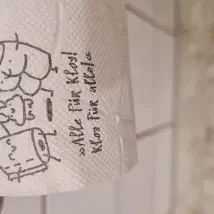 »Alle für Klos!
Klos für alle!«